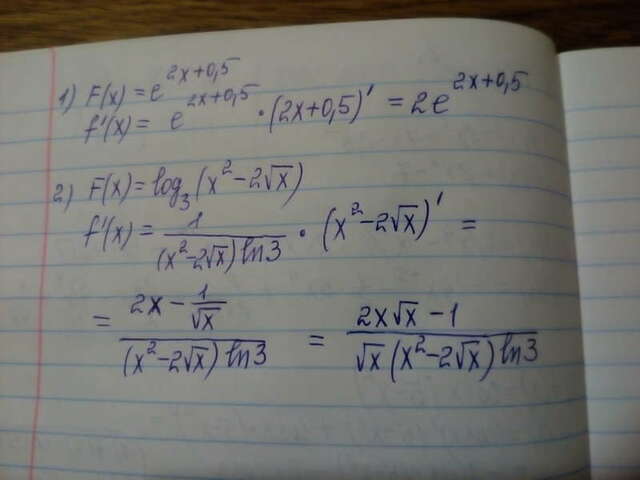 1) F(x) = e^{2x+0,5}
f'(x) = e^{2x+0,5} · (2x+0,5)' = 2e^{2x+0,5}
2) F(x) = log₃(x² - 2√x)
f'(x) = \frac{1}{(x² - 2√x) ln 3} · (x² - 2√x)' =
= \frac{2x - \frac{1}{√x}}{(x² - 2√x) ln 3} = \frac{2x√x - 1}{√x (x² - 2√x) ln 3}